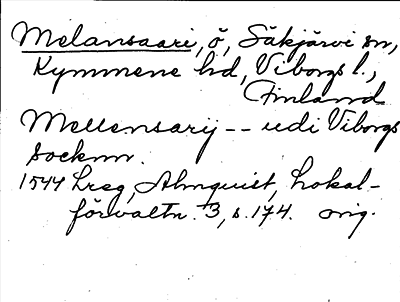 Melansaari, ö, Säkjärvi sn,
Kymmene hd, Viborgs l.,
Finland
Mellensarij -- udi Viborgs
socknn.
1544 Lreg, Almquist, Lokal-
förvaltn. 3, s. 174. orig.